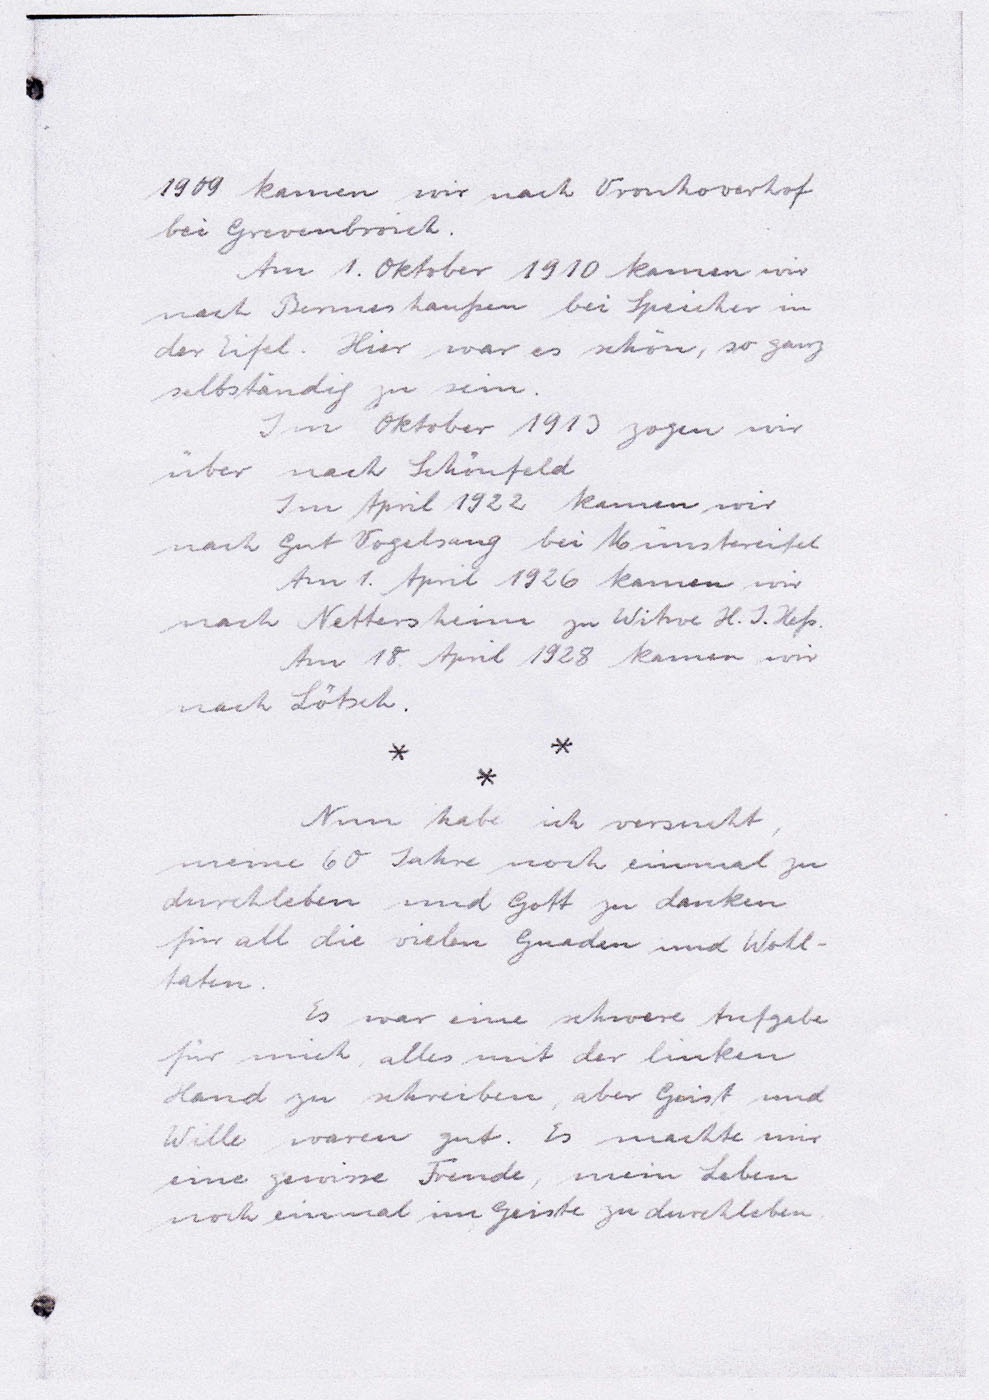 1909 kamen wir nach Vronhoverhof
bei Grevenbroich.
Am 1. Oktober 1910 kamen wir
nach Bermeshaußen bei Speicher in
der Eifel. Hier war es schön, so ganz
selbständig zu sein.
Im Oktober 1913 zogen wir
über nach Schönfeld
Im April 1922 kamen wir
nach Gut Vogelsang bei Münstereifel
Am 1. April 1926 kamen wir
nach Nettersheim zu Witwe H. J. Heß.
Am 18. April 1928 kamen wir
nach Lötsch.
* *
*
Nun habe ich versucht,
meine 60 Jahre noch einmal zu
durchleben und Gott zu danken
für all die vielen Gnaden und Wohl-
taten.
Es war eine schwere Aufgabe
für mich, alles mit der linken
Hand zu schreiben, aber Geist und
Wille waren gut. Es machte mir
eine gewisse Freude, mein Leben
noch einmal im Geiste zu durchleben.